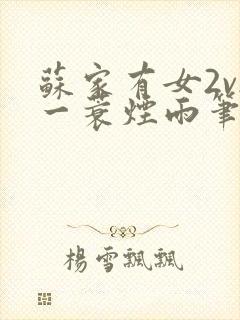 蘇家有女2v
一蓑煙雨筆
楊雪飄飄